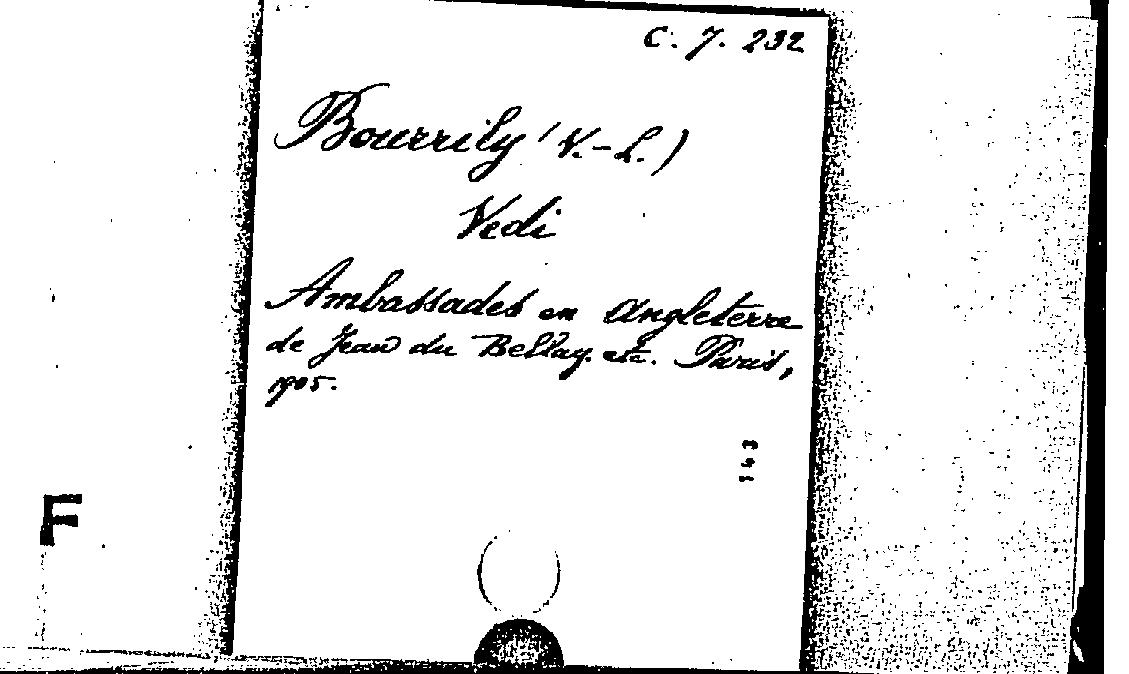 C. 7. 232
Bourrily (V.-L.)
Vedi
Ambassades en Angleterre
de Jean du Bellay. etc. Paris,
1905.
143
F